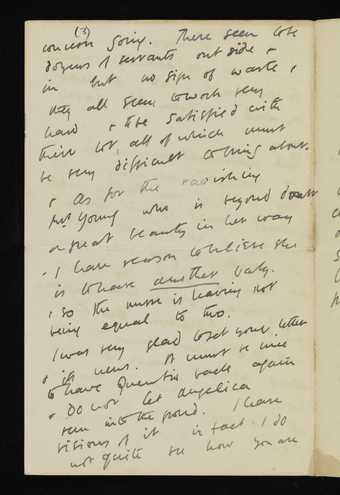 (3)
concern going. There seem to be
dozens of servants outside &
in but no sign of waste,
they all seem to work very
hard & to be satisfied with
their lot, all of which must
be very difficult to bring about.
& as for the ravishing
Mrs Young who is beyond doubt
a great beauty in her way
. I have reason to believe she
is to have another baby.
, so the nurse is leaving not
being equal to two.
I was very glad to get your letter
& its news. It must be nice
to have Quentin back again
. Do not let Angelica
run into the pond. I have
visions of it in fact I do
not quite see how you are